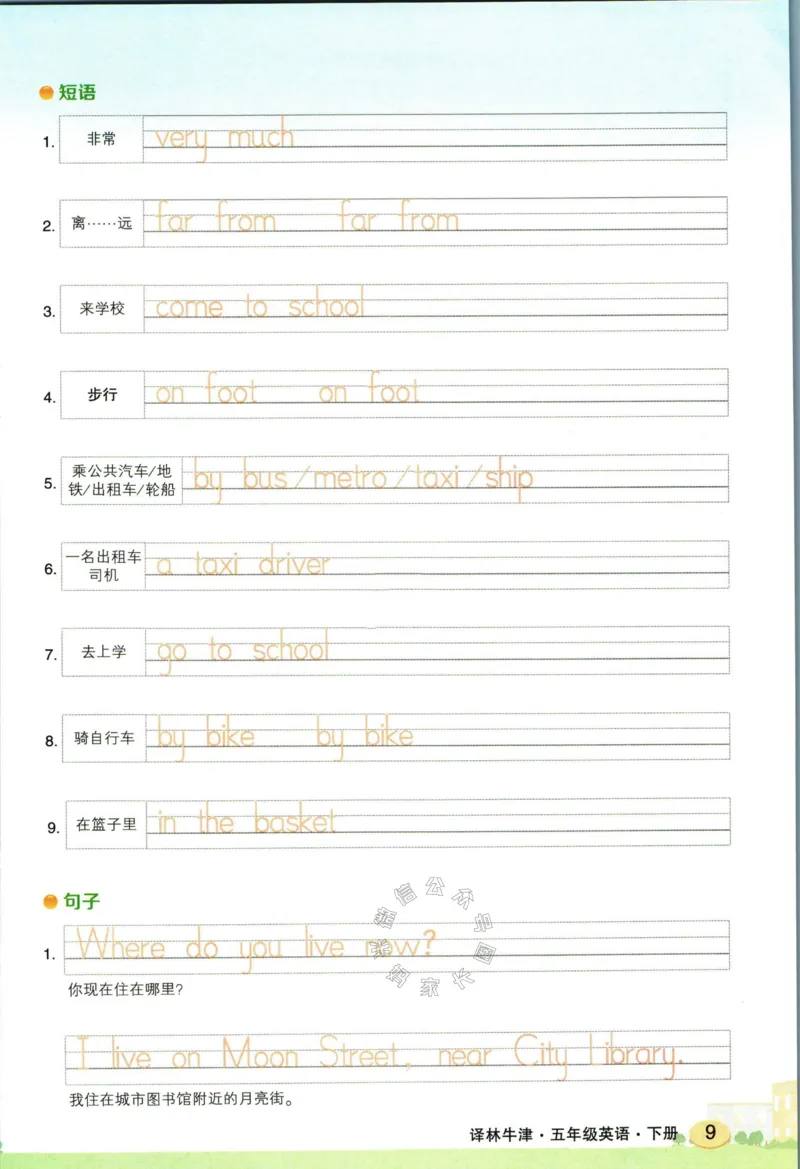 短语
1. 非常 very much
2. 离……远 far from far from
3. 来学校 come to school
4. 步行 on foot on foot
5. 乘公共汽车/地铁/出租车/轮船 by bus/metro/taxi/ship
6. 一名出租车司机 a taxi driver
7. 去上学 go to school
8. 骑自行车 by bike by bike
9. 在篮子里 in the basket
句子
1. Where do you live now?
你现在住在哪里?
I live on Moon Street, near City Library.
我住在城市图书馆附近的月亮街。
译林牛津·五年级英语·下册 9